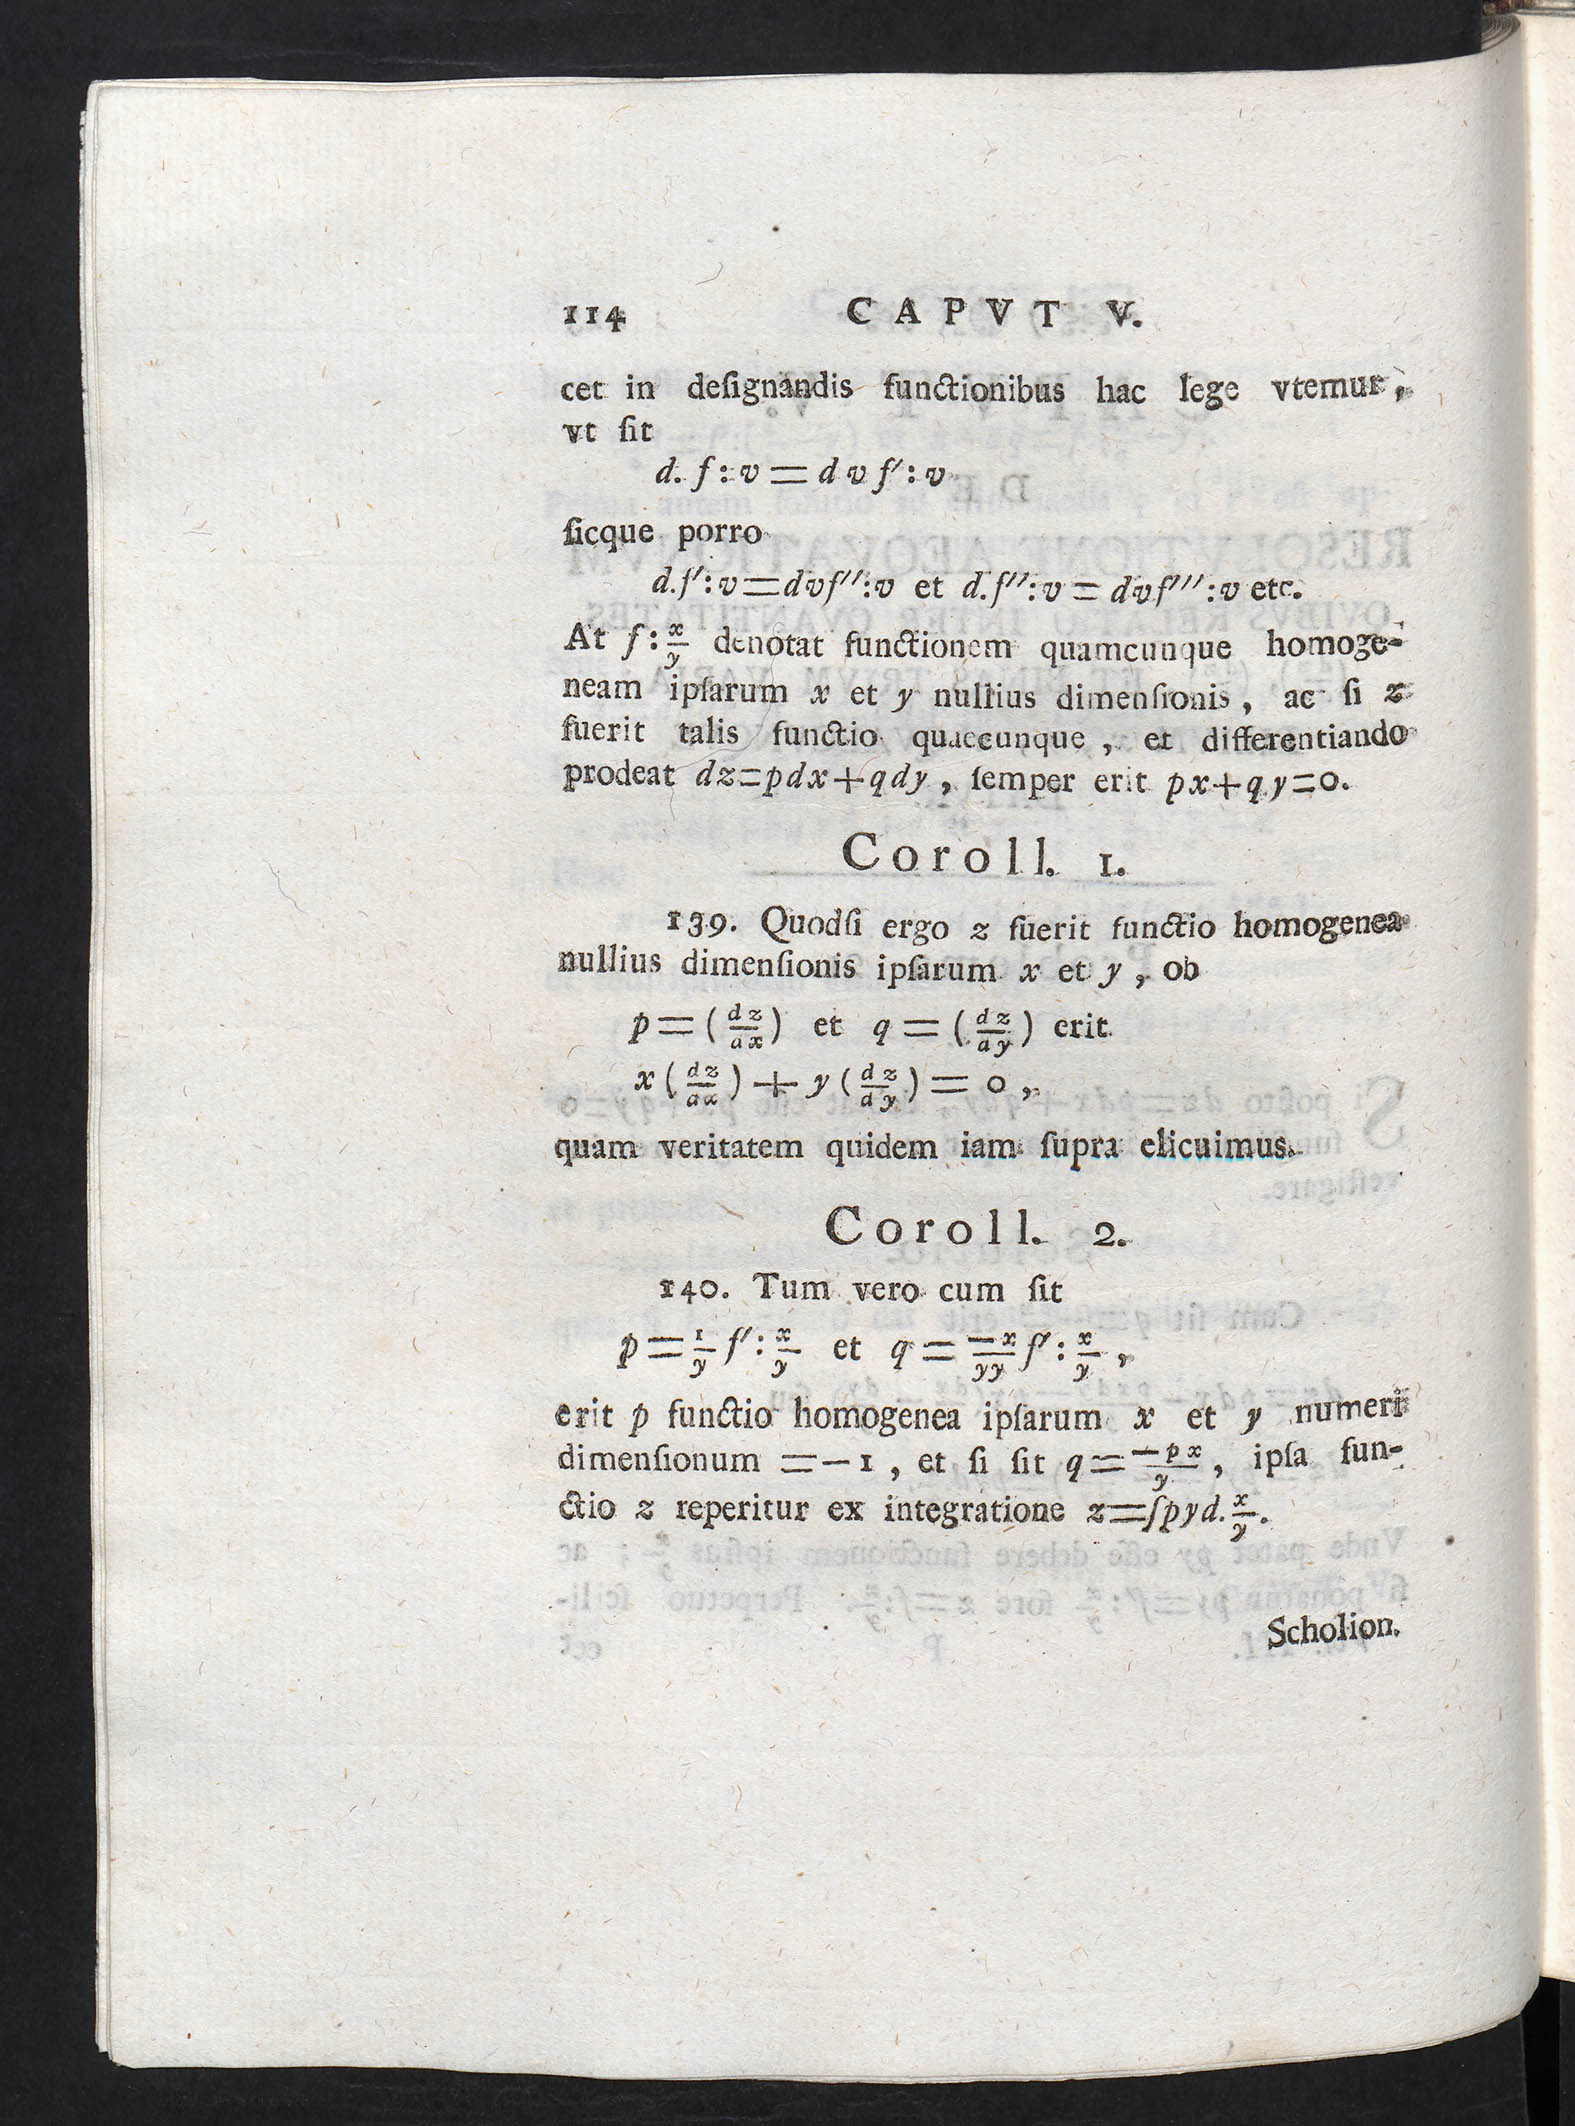 114 CAPVT V.
cet in deſignandis functionibus hac lege vtemur,
vt ſit
d. f:v = dv f′:v
ſicque porro
d.f′:v=dvf′′:v et d.f′′:v = dvf′′′:v etc.
At f:x/y denotat functionem quamcunque homoge-
neam ipſarum x et y nullius dimenſionis, ac ſi z
fuerit talis functio quaecunque, et differentiando
prodeat dz=pdx+qdy, ſemper erit px+qy=0.
Coroll. 1.
139. Quodſi ergo z fuerit functio homogenea
nullius dimenſionis ipſarum x et y, ob
p=(dz/dx) et q=(dz/dy) erit
x(dz/dx)+y(dz/dy)=0,
quam veritatem quidem iam ſupra elicuimus.
Coroll. 2.
140. Tum vero cum ſit
p=1/y f′:x/y et q=-x/yy f′:x/y,
erit p functio homogenea ipſarum x et y numeri
dimenſionum =-1, et ſi ſit q=-px/y, ipſa fun-
ctio z reperitur ex integratione z=∫pyd.x/y.
Scholion.